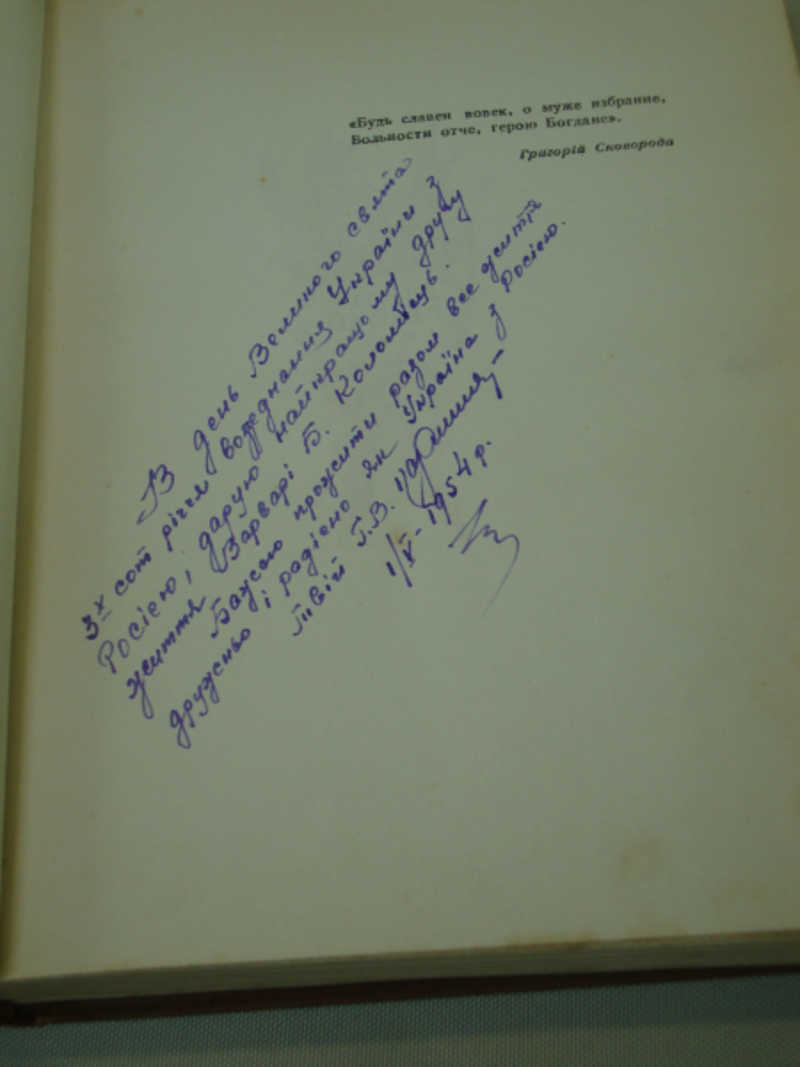 «Будь славен вовек, о муже избрание,
Вольности отче, герою Богдане».
Григорій Сковорода
В день Великого свята
3х сот річчя возєднання України з
Росією, дарую найкращому другу
життя Варварі Б. Коломієць.
Бажаю прожити разом все життя
дружньо і радісно як Україна з Росією.
Твій Г. В.
1/X-1954 р.